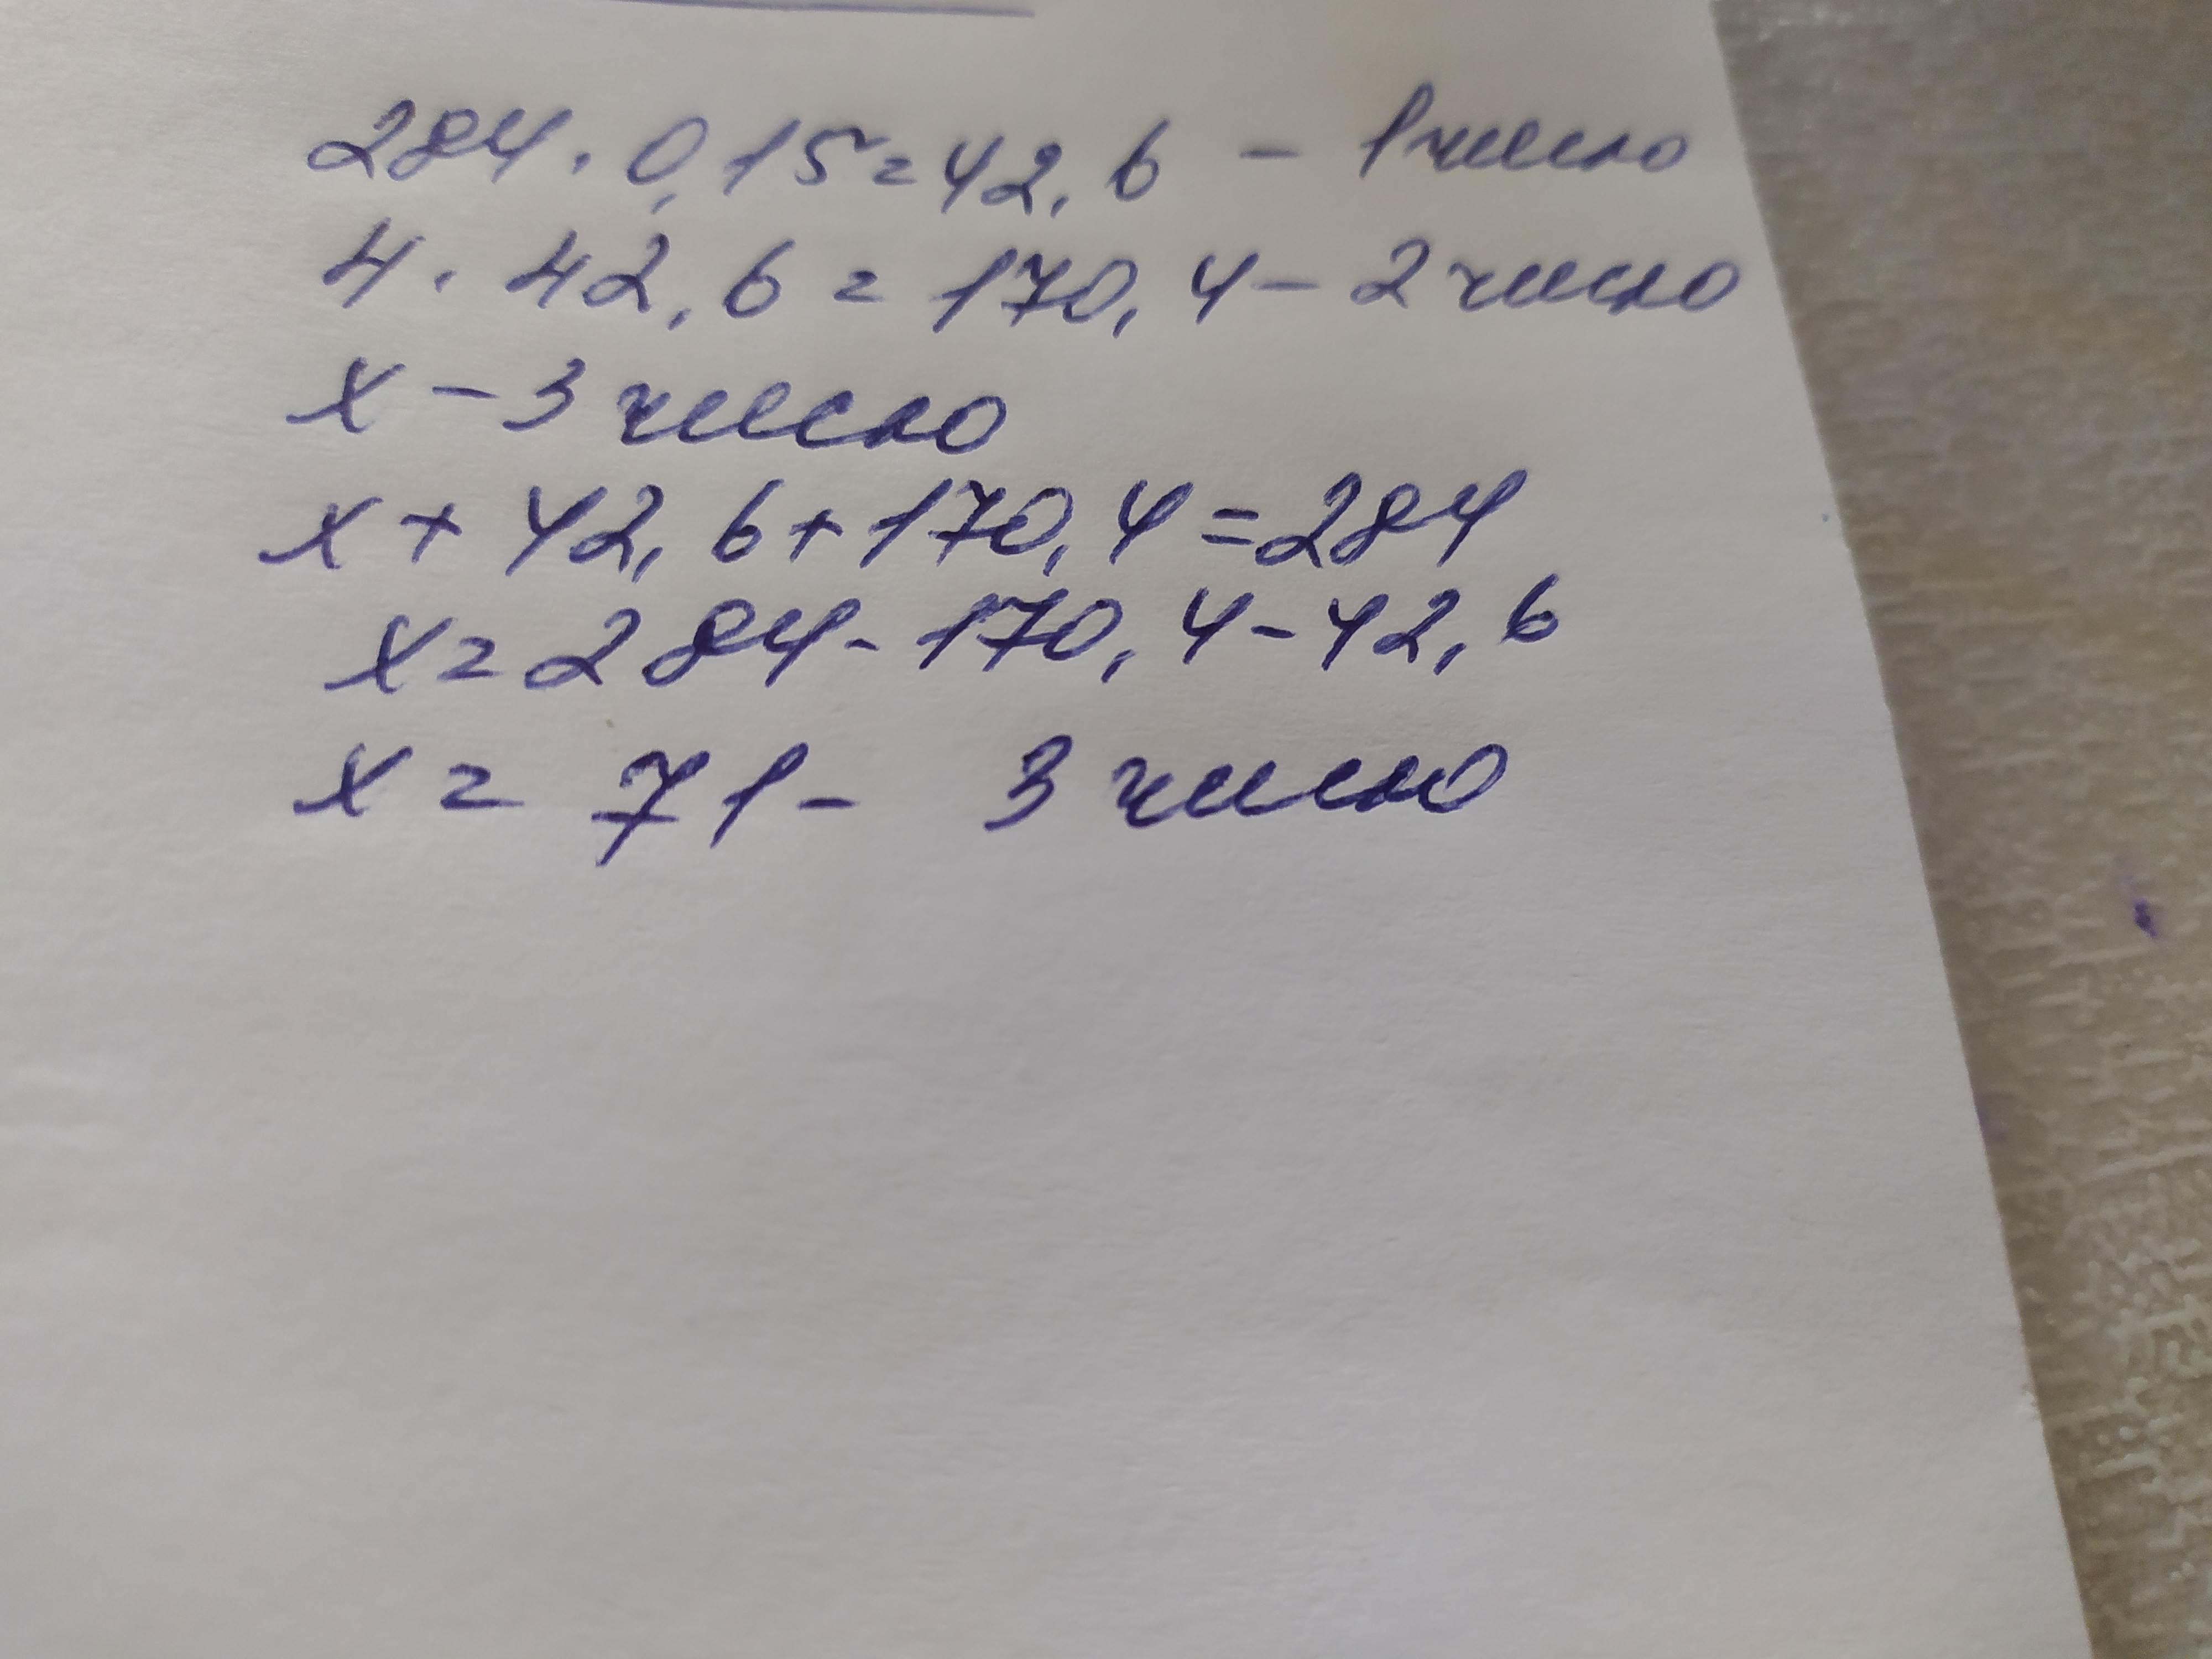 284 · 0,15 = 42,6 - 1 число
4 · 42,6 = 170,4 - 2 число
x - 3 число
x + 42,6 + 170,4 = 284
x = 284 - 170,4 - 42,6
x = 71 - 3 число